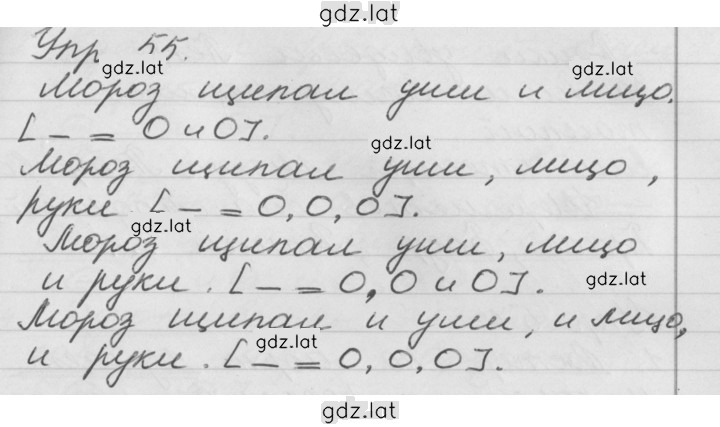 gdz.lat
Упр 55.
gdz.lat
gdz.lat
Мороз щипал уши и лицо.
[ – = О и О].
gdz.lat
Мороз щипал уши, лицо,
руки [ – = О, О, О].
gdz.lat
Мороз щипал уши, лицо
и руки. [ – = О, О и О].
gdz.lat
Мороз щипал и уши, и лицо,
gdz.lat
и руки. [ – = О, О, О].
gdz.lat